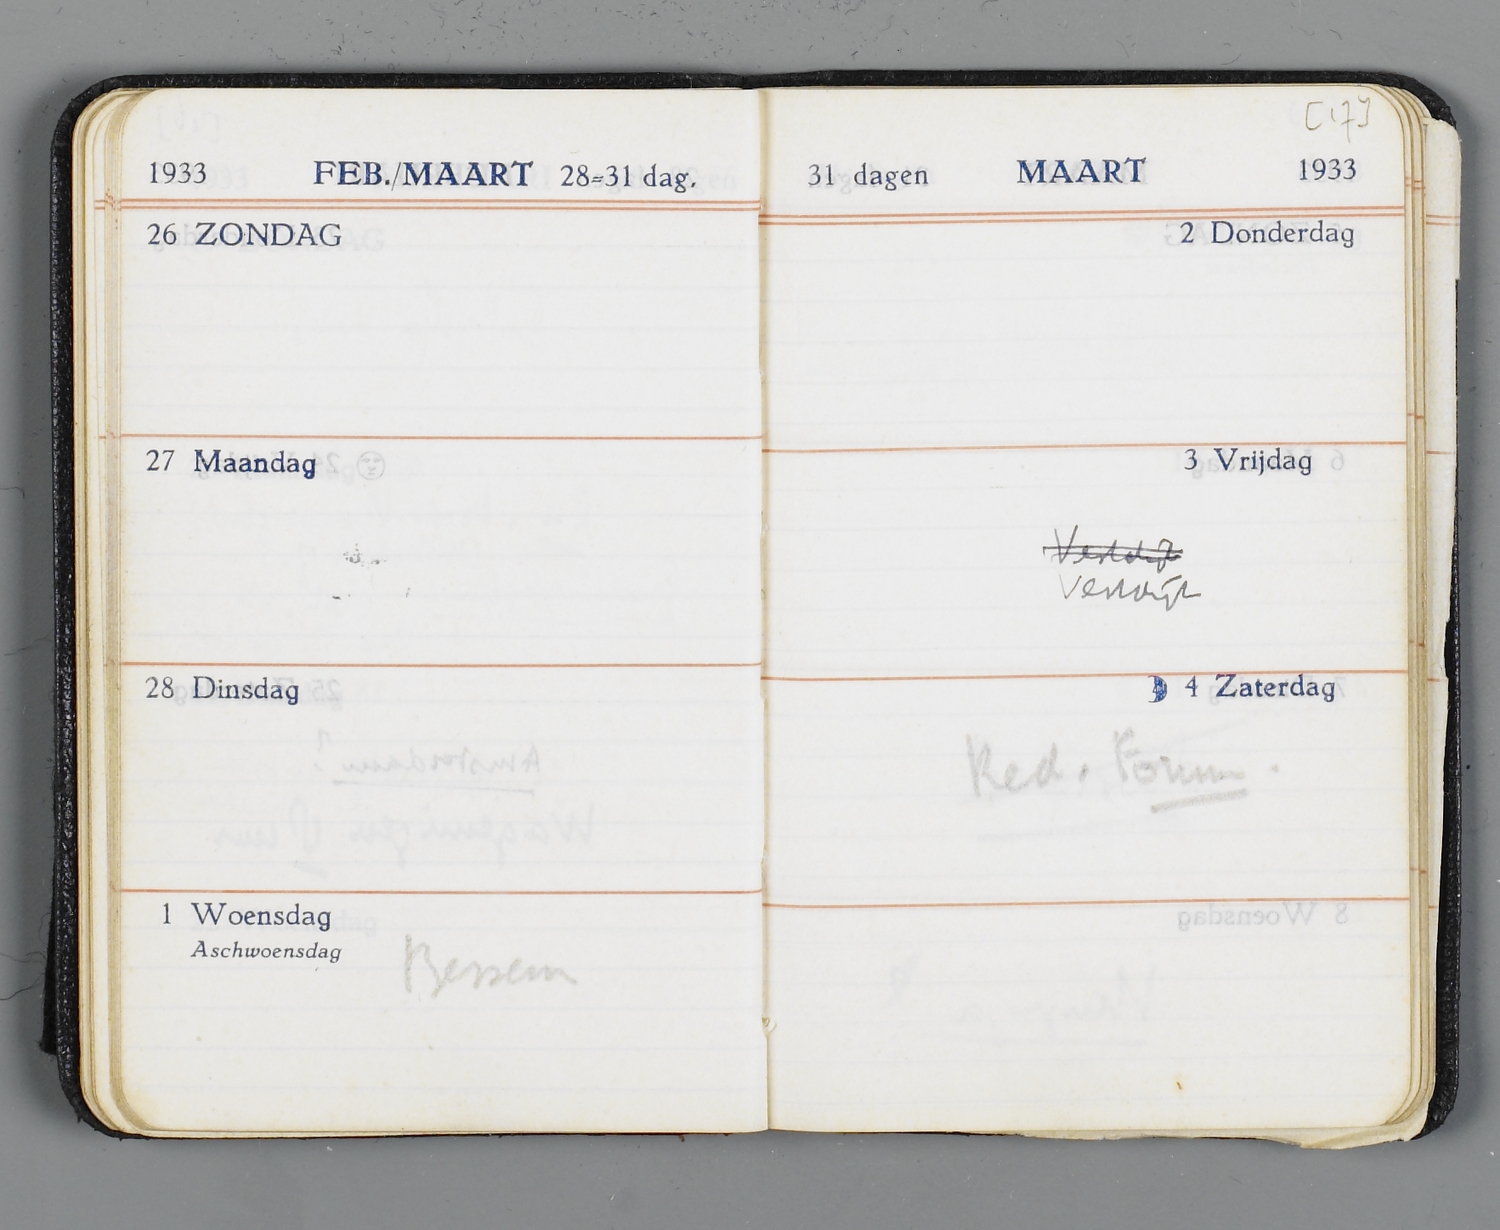 1933 FEB./MAART 28=31 dag.
26 ZONDAG
27 Maandag
28 Dinsdag
1 Woensdag
Aschwoensdag
Bessem
[17]
31 dagen MAART 1933
2 Donderdag
3 Vrijdag
4 Zaterdag
Red. Forum.